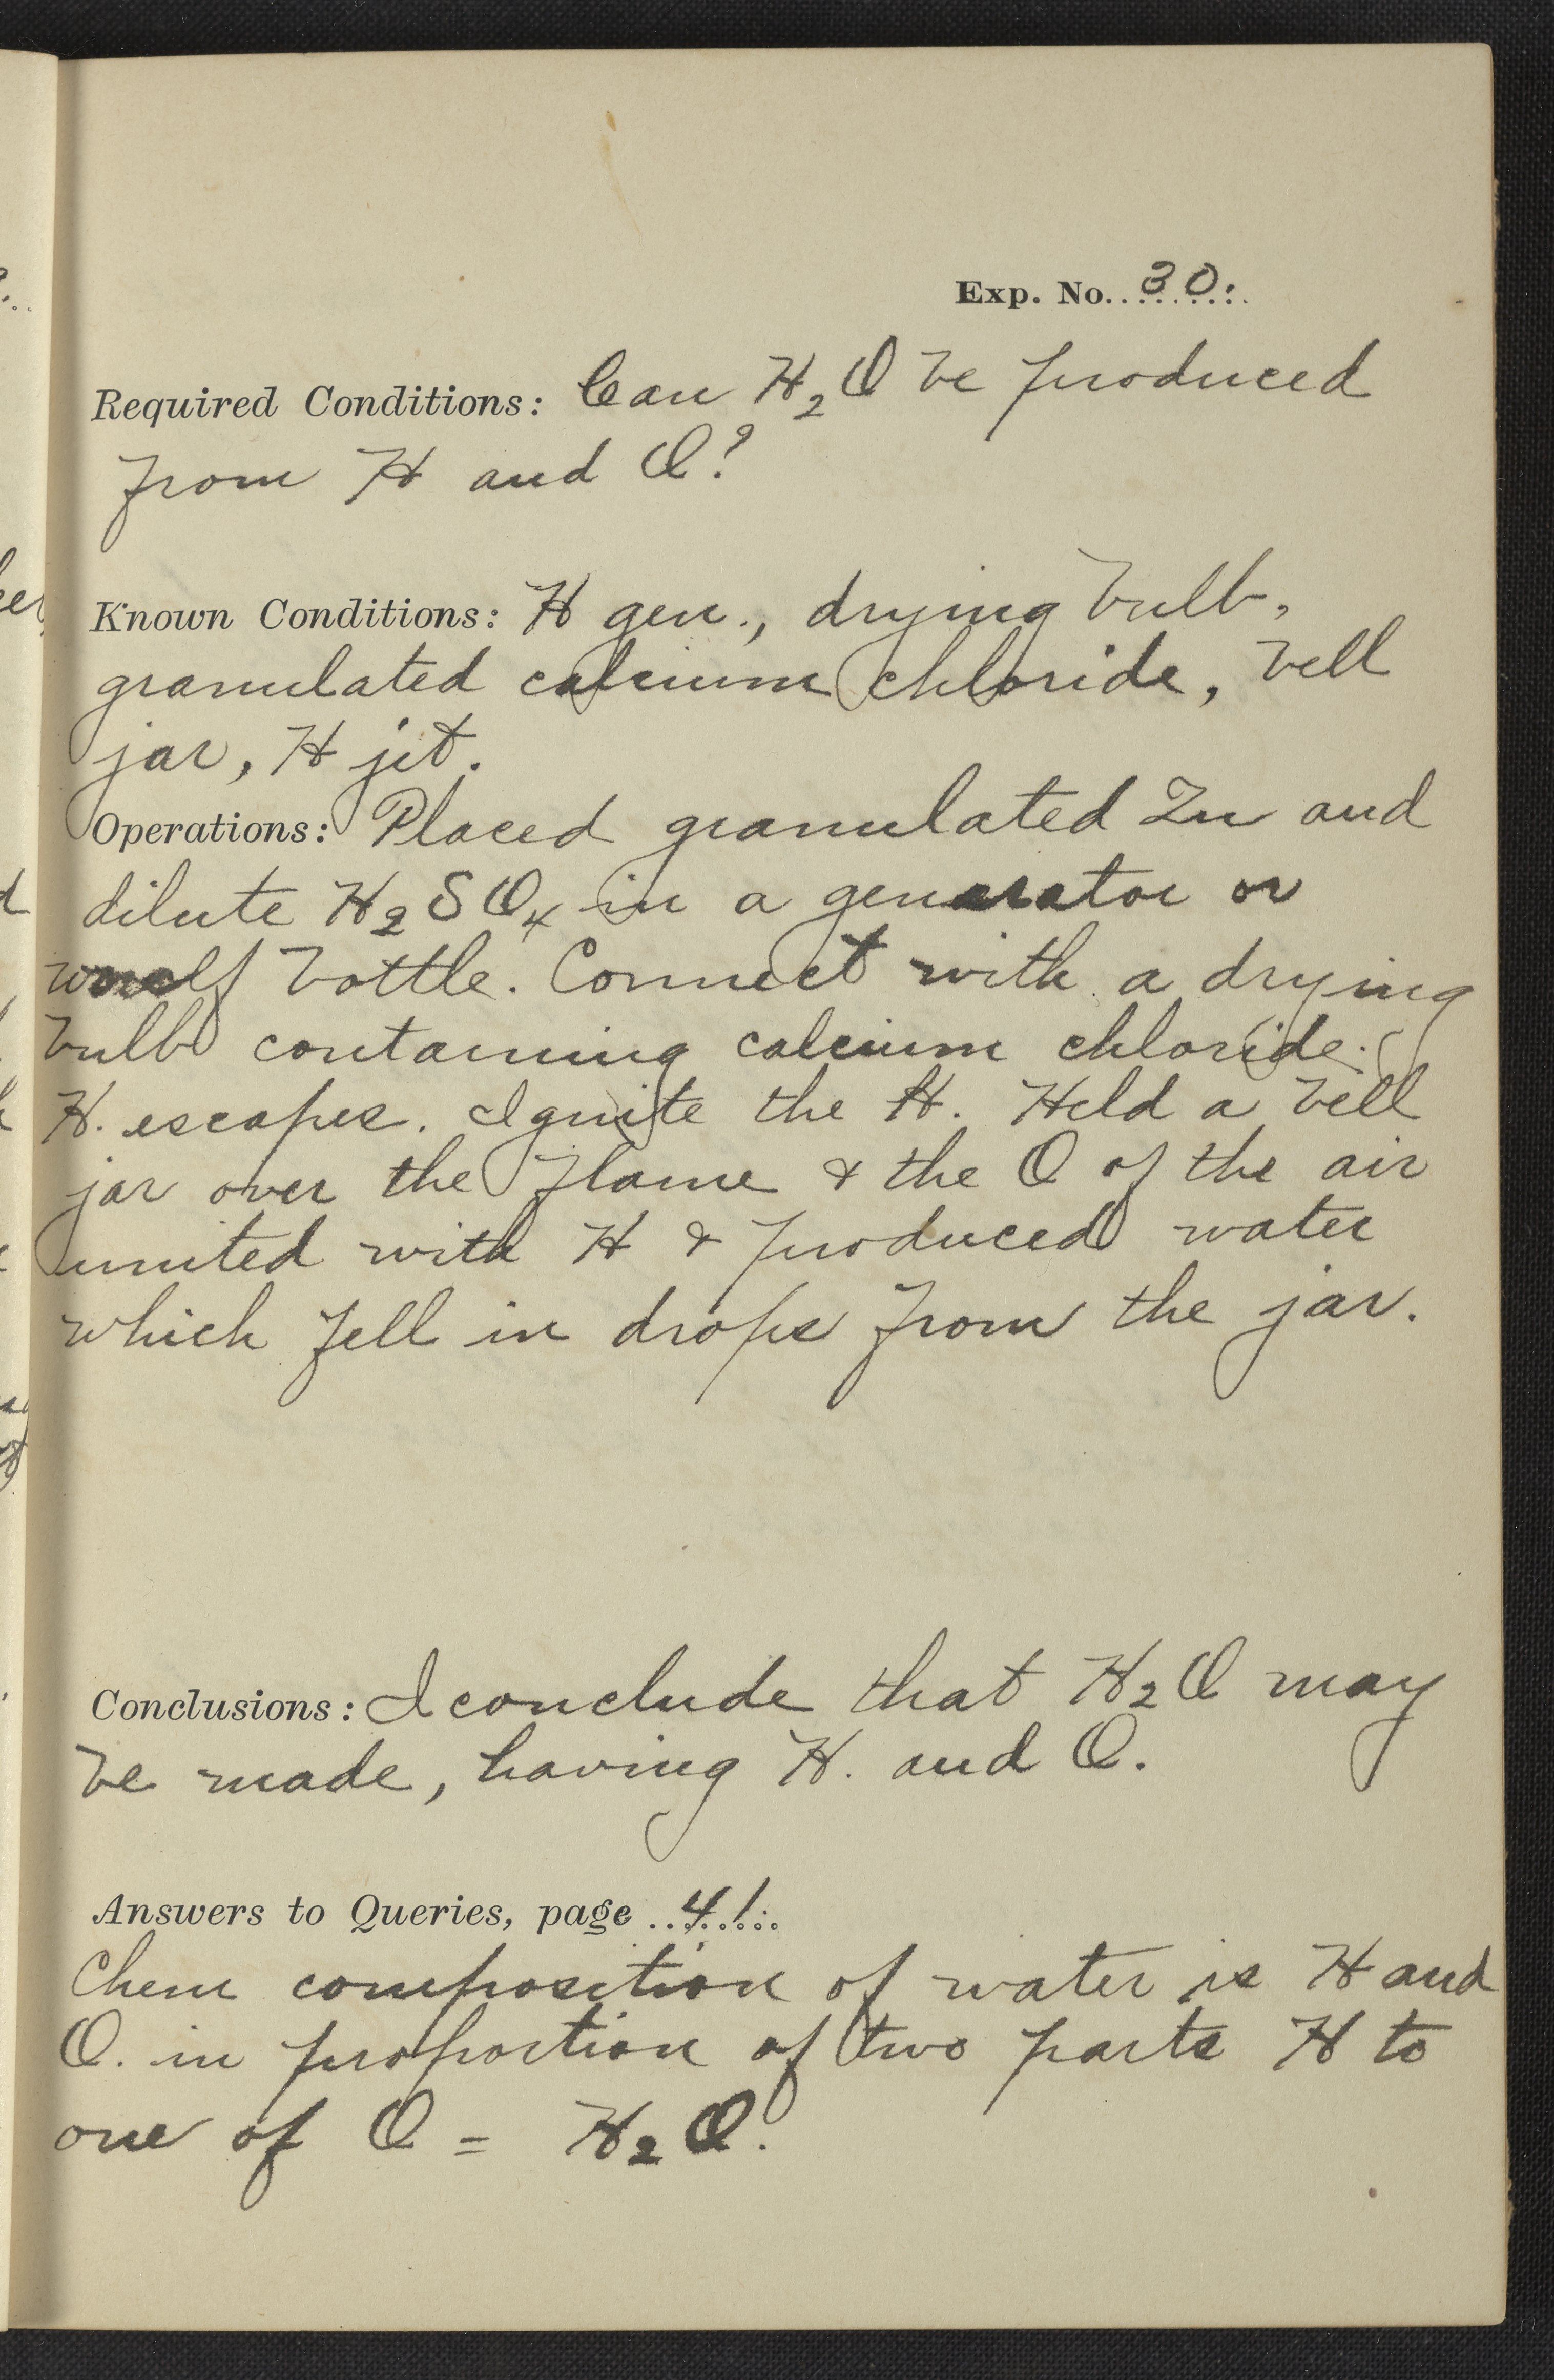 Exp. No. 30.
Required Conditions: Can H2O be produced
from H and O?
Known Conditions: H gen., drying bulb,
granulated calcium chloride, bell
jar, H jet.
Operations: Placed granulated Zn and
dilute H2SO4 in a generator or
woulf bottle. Connect with a drying
bulb containing calcium chloride.
H. escapes. Ignite the H. Held a bell
jar over the flame & the O of the air
united with H & produced water
which fell in drops from the jar.
Conclusions: I conclude that H2O may
be made, having H. and O.
Answers to Queries, page 41.
Chem composition of water is H and
O. in proportion of two parts H to
one of O = H2O.